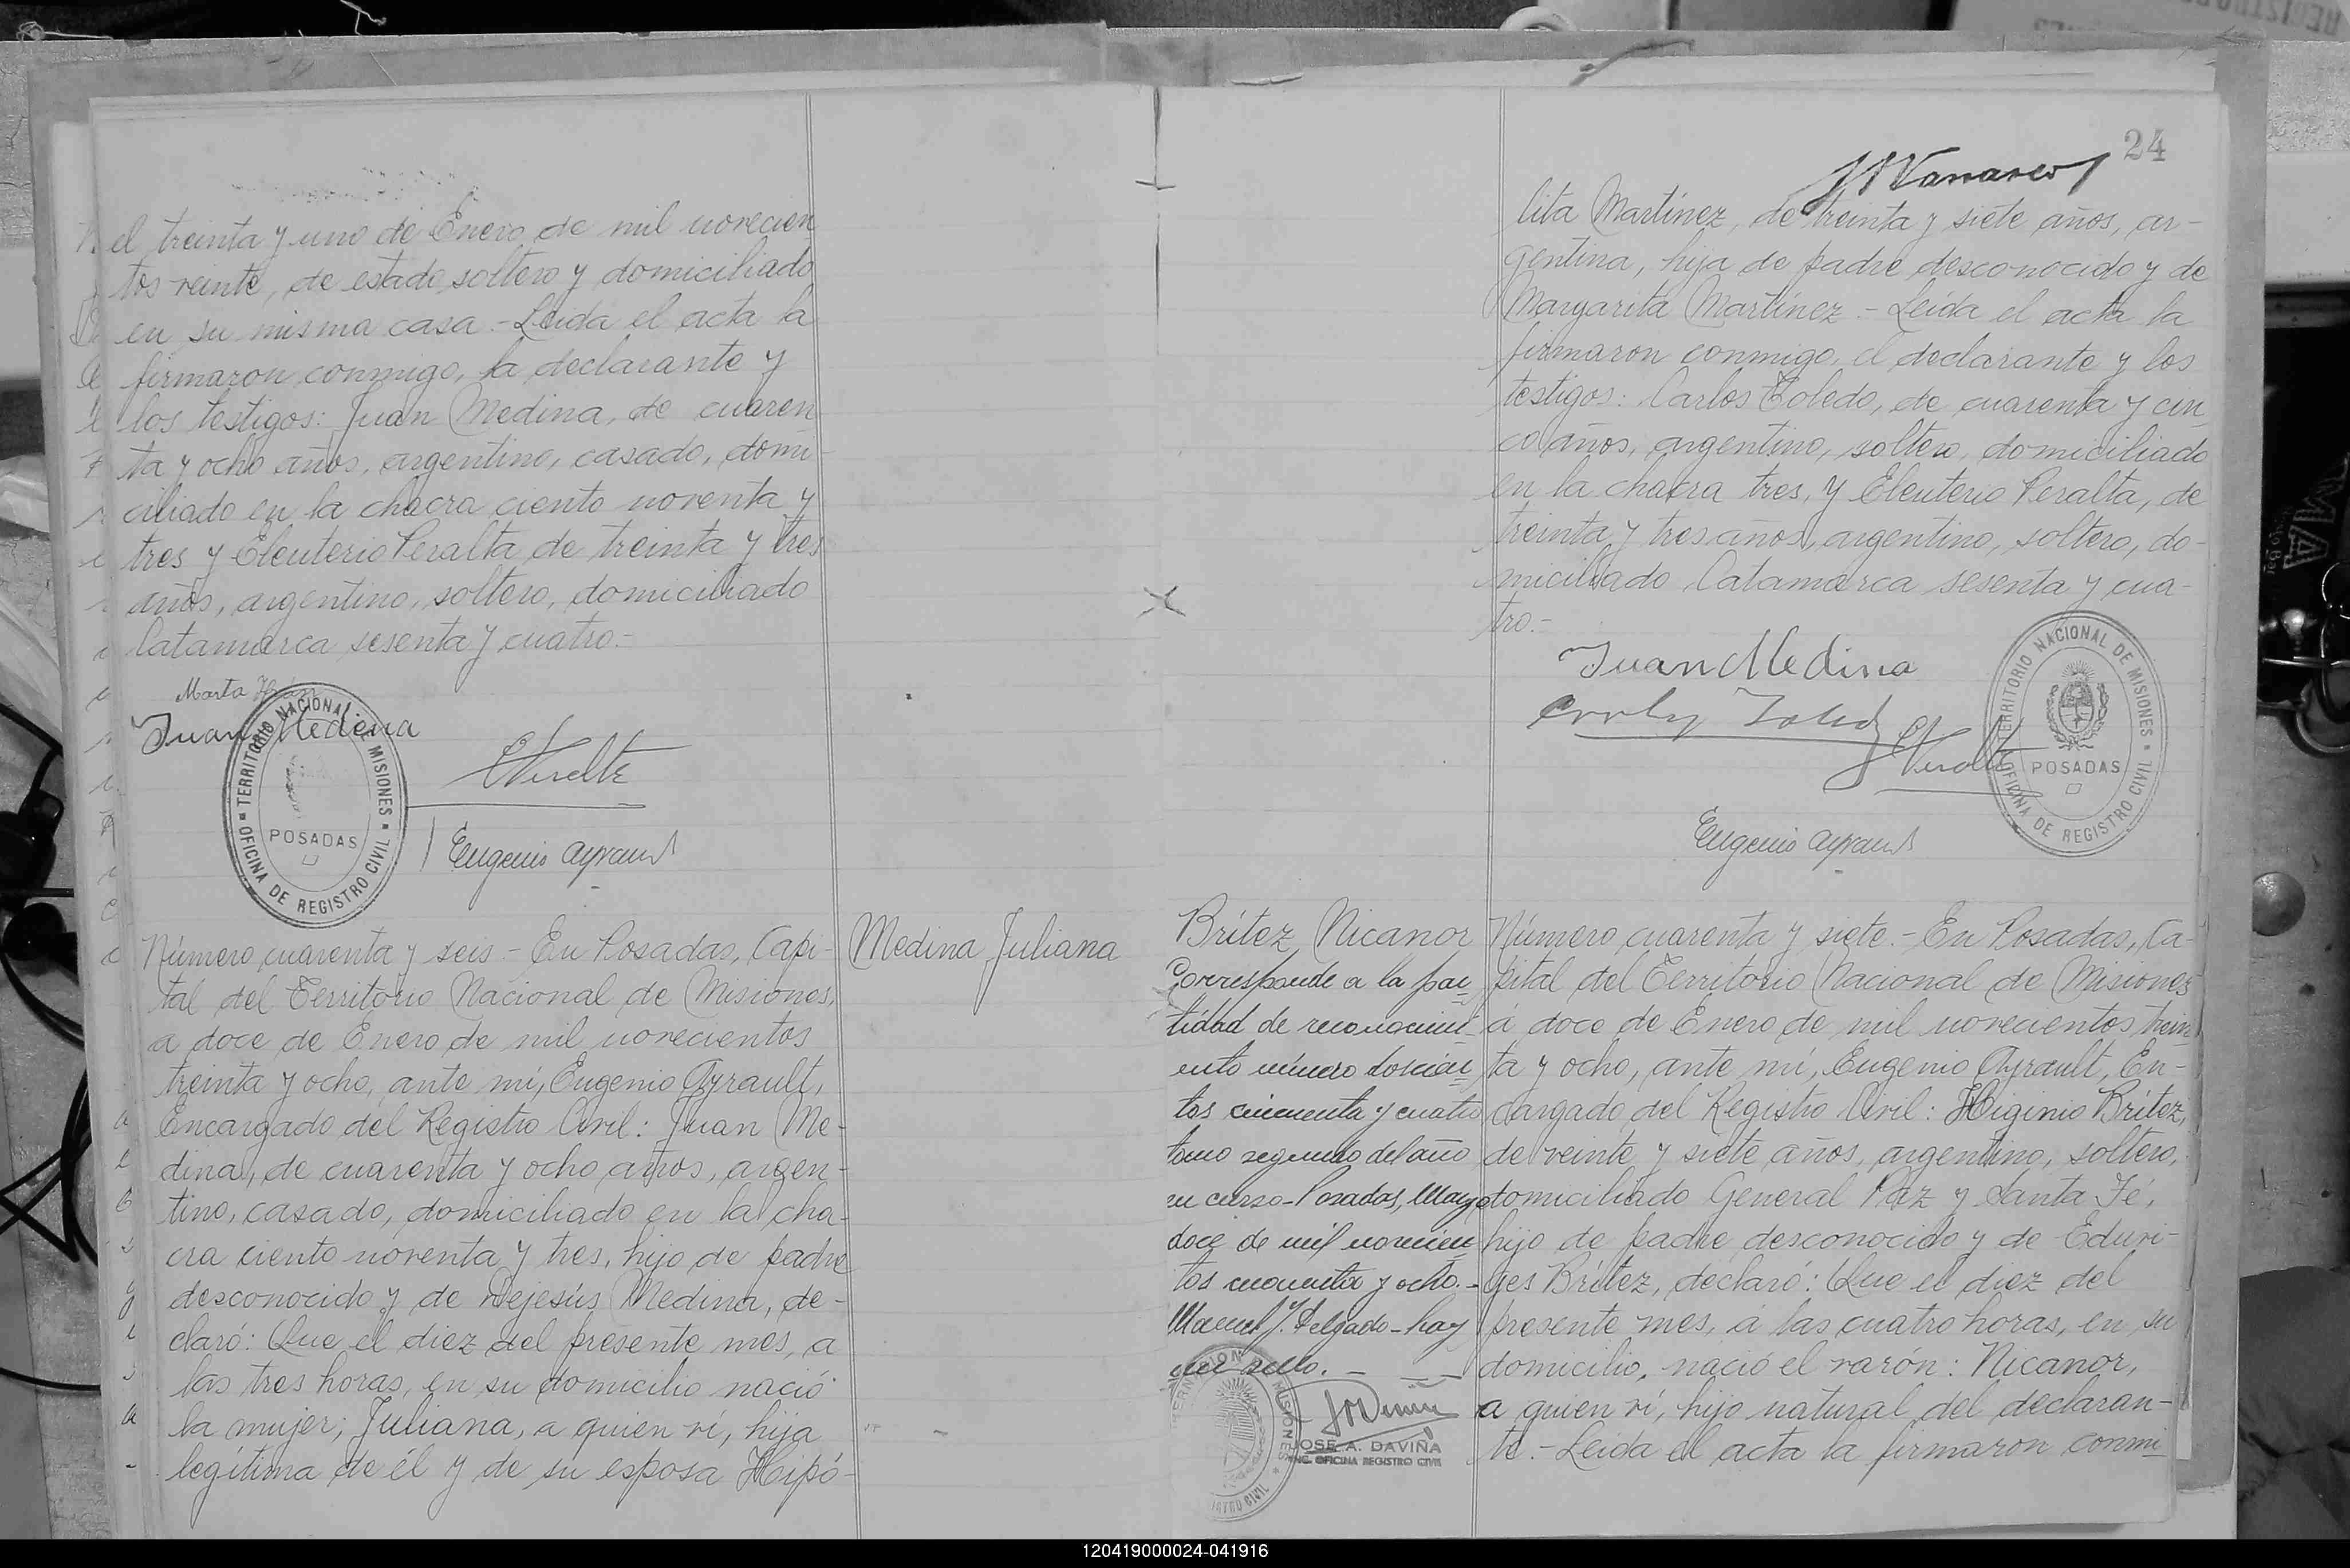 el treinta y uno de Enero de mil novecien
tos veinte, de estado soltero y domiciliado
en su misma casa.- Leida el acta la
firmaron conmigo, la declarante y
los testigos: Juan Medina, de cuaren
ta y ocho años, argentino, casado, domi-
ciliado en la chacra ciento noventa y
tres y Eleuterio Peralta de treinta y tres
años, argentino, soltero, domiciliado
Catamarca sesenta y cuatro.-
Marta
Juan Medina
TERRITORIO NACIONAL DE MISIONES
POSADAS
OFICINA DE REGISTRO CIVIL
EPeralta
Eugenio Ayrault
Medina Juliana
Número cuarenta y seis - En Posadas, Capi-
tal del Territorio Nacional de Misiones,
a doce de Enero de mil novecientos
treinta y ocho, ante mí, Eugenio Ayrault,
Encargado del Registro Civil: Juan Me-
dina, de cuarenta y ocho años, argen-
tino, casado, domiciliado en la cha-
cra ciento noventa y tres, hijo de padre
desconocido y de Dejesús Medina, de-
claró: Que el diez del presente mes, a
las tres horas, en su domicilio nació
la mujer; Juliana, a quien ví, hija
legítima de él y de su esposa Hipó-
24
lita Martínez, de treinta y siete años, ar-
gentina, hija de padre desconocido y de
Margarita Martínez.- Leída el acta la
firmaron conmigo, el declarante y los
testigos: Carlos Toledo, de cuarenta y cin
co años, argentino, soltero, domiciliado
en la chacra tres, y Eleuterio Peralta, de
treinta y tres años, argentino, soltero, do-
miciliado Catamarca sesenta y cua-
tro.-
Juan Medina
Carlos Toledo
EPeralta
TERRITORIO NACIONAL DE MISIONES
POSADAS
OFICINA DE REGISTRO CIVIL
Eugenio Ayrault
Brítez Nicanor
Corresponde a la par
tidad de reconocimi
ento número doscien
tos cincuenta y cuatro
tomo segundo del año
en curso - Posadas, Mayo
doce de mil novecien
tos cuarenta y ocho.-
Manuel J. Delgado - hay
un sello. -
JOSE A. DAVIÑA
ENC. OFICINA REGISTRO CIVIL
Número cuarenta y siete.- En Posadas, Ca-
pital del Territorio Nacional de Misiones
á doce de Enero de mil novecientos trein
ta y ocho, ante mí, Eugenio Ayrault, En-
cargado del Registro Civil: Higinio Brítez,
de veinte y siete años, argentino, soltero,
domiciliado General Paz y Santa Fé,
hijo de padre desconocido y de Eduvi-
ges Brítez, declaró: Que el diez del
presente mes, á las cuatro horas, en su
domicilio, nació el varón: Nicanor,
a quien ví, hijo natural del declaran-
te.- Leida el acta la firmaron conmi
120419000024-041916